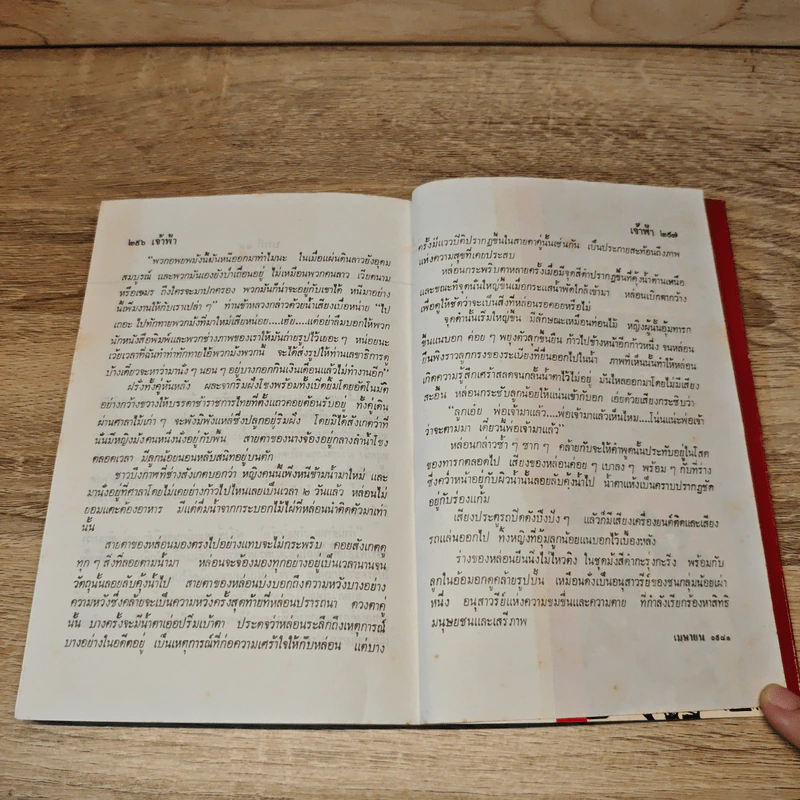 ๒๕๖ เจ้าฟ้า
"พวกอพยพมังนี้มันหนีออกมาทำไมนะ ในเมื่อแผ่นดินลาวยังอุดม
สมบูรณ์ และพวกมันเองยังป่าเถื่อนอยู่ ไม่เหมือนพวกคนลาว เวียดนาม
หรือเขมร ถึงใครจะมาปกครอง พวกมันก็น่าจะอยู่กับเขาได้ หนีมาอย่าง
นี้เพิ่มงานให้กับเราเปล่า ๆ" ท่านข้าหลวงกล่าวด้วยน้ำเสียงเบื่อหน่าย "ไป
เถอะ ไปทักทายพวกมังที่มาใหม่เสียหน่อย....เอ้ย....แต่อย่าลืมบอกให้พวก
นักหนังสือพิมพ์และพวกช่างภาพของเราให้มันถ่ายรูปไว้เยอะ ๆ หน่อยนะ
เวัยเวลาที่ฉันทำท่าทักทายไอ้พวกมังพวกนี้ จะได้ส่งรูปให้ท่านเลขาธิการดู
บ้างเดี๋ยวจะหาว่ามานั่ง ๆ นอน ๆ อยู่บางกอกกินเงินเดือนแล้วไม่ทำงานอีก"
ฝรั่งทั้งคู่หันหลัง ผละจากริมฝั่งโขงพร้อมทั้งเปิดยิ้มโดยอัตโนมัติ
อย่างกว้างขวางให้บรรดาข้าราชการไทยที่ตั้งแถวคอยต้อนรับอยู่ ทั้งคู่เดิน
ผ่านศาลาไม้เก่า ๆ จะพังมิพังแหล่ซึ่งปลูกอยู่ริมฝั่ง โดยมิได้สังเกตว่าที่
นั่นมีหญิงมังคนหนึ่งนั่งอยู่กับพื้น สายตาของนางจ้องอยู่กลางลำน้ำโขง
ตลอดเวลา มีลูกน้อยนอนหลับสนิทอยู่บนตัก
ชาวบึงกาฬที่ช่างสังเกตบอกว่า หญิงคนนี้เพิ่งหนีข้ามน้ำมาใหม่ และ
มานั่งอยู่ที่ศาลาโดยไม่เคยย่างก้าวไปไหนเลยเป็นเวลา ๒ วันแล้ว หล่อนไม่
ยอมแตะต้องอาหาร มีแต่ดื่มน้ำจากกระบอกไม้ไผ่ที่หล่อนนำติดตัวมาเท่า
นั้น
สายตาของหล่อนมองตรงไปอย่างแทบจะไม่กระพริบ คอยสังเกตดู
ทุก ๆ สิ่งที่ลอยตามน้ำมา หล่อนจะจ้องมองทุกอย่างอยู่เป็นเวลานานจน
วัตถุนั้นลอยลับคุ้งน้ำไป สายตาของหล่อนบ่งบอกถึงความหวังบางอย่าง
ความหวังซึ่งคล้ายจะเป็นความหวังครั้งสุดท้ายที่หล่อนปรารถนา ดวงตาคู่
นั้น บางครั้งจะมีน้ำตาเอ่อปริ่มเบ้าตา ประดุจว่าหล่อนระลึกถึงเหตุการณ์
บางอย่างในอดีตอยู่ เป็นเหตุการณ์ที่ก่อความเศร้าใจให้กับหล่อน แต่บาง
เจ้าฟ้า ๒๕๗
ครั้งมีแววปิติปรากฏขึ้นในสายตาคู่นั้นเช่นกัน เป็นประกายสะท้อนถึงภาพ
แห่งความสุขที่เคยประสบ
หล่อนกระพริบตาหลายครั้งเมื่อมีจุดสีดำปรากฏขึ้นที่คุ้งน้ำด้านเหนือ
และขณะที่จุดนั้นใหญ่ขึ้นเมื่อกระแสน้ำพัดใกล้เข้ามา หล่อนเบิกตากว้าง
เพื่อดูให้ชัดว่าจะเป็นสิ่งที่หล่อนรอคอยหรือไม่
จุดดำนั้นเริ่มใหญ่ขึ้น มีลักษณะเหมือนท่อนไม้ หญิงผู้นั้นอุ้มทารก
ขึ้นแนบอก ค่อย ๆ พยุงตัวลุกขึ้นยืน ก้าวไปข้างหน้าอีกก้าวหนึ่ง จนหล่อน
ยืนพิงราวลูกกรงของระเบียงที่ยื่นออกไปในน้ำ ภาพที่เห็นนั้นทำให้หล่อน
เกิดความรู้สึกเศร้าสลดจนกลั้นน้ำตาไว้ไม่อยู่ มันไหลออกมาโดยไม่มีเสียง
สะอื้น หล่อนกระชับลูกน้อยให้แน่นเข้ากับอก เอ่ยด้วยเสียงกระซิบว่า
"ลูกเอ๋ย พ่อเจ้ามาแล้ว....พ่อเจ้ามาแล้วเห็นไหม....โน่นแน่ะพ่อเจ้า
ว่าจะตามมา เดี๋ยวนี้พ่อเจ้ามาแล้ว"
หล่อนกล่าวซ้ำ ๆ ซาก ๆ คล้ายกับจะให้คำพูดนั้นประทับอยู่ในโสต
ของทารกตลอดไป เสียงของหล่อนค่อย ๆ เบาลง ๆ พร้อม ๆ กับที่ร่าง
ซึ่งคว่ำหน้าอยู่กับผิวน้ำนั้นลอยลับคุ้งน้ำไป น้ำตาแห้งเป็นคราบปรากฏชัด
อยู่กับร่องแก้ม
เสียงประตูรถปิดดังปึงปัง ๆ แล้วก็มีเสียงเครื่องยนต์ติดและเสียง
รถแล่นออกไป ทิ้งหญิงที่อุ้มลูกน้อยแนบอกไว้เบื้องหลัง
ร่างของหล่อนยืนนิ่งไม่ไหวติง ในชุดมังสีดำกะรุ่งกะริ่ง พร้อมกับ
ลูกในอ้อมอกดูคล้ายรูปปั้น เหมือนดังเป็นอนุสาวรีย์ของชนกลุ่มน้อยเผ่า
หนึ่ง อนุสาวรีย์แห่งความขมขื่นและความตาย ที่กำลังเรียกร้องหาสิทธิ
มนุษยชนและเสรีภาพ
เมษายน ๑๙๘๑